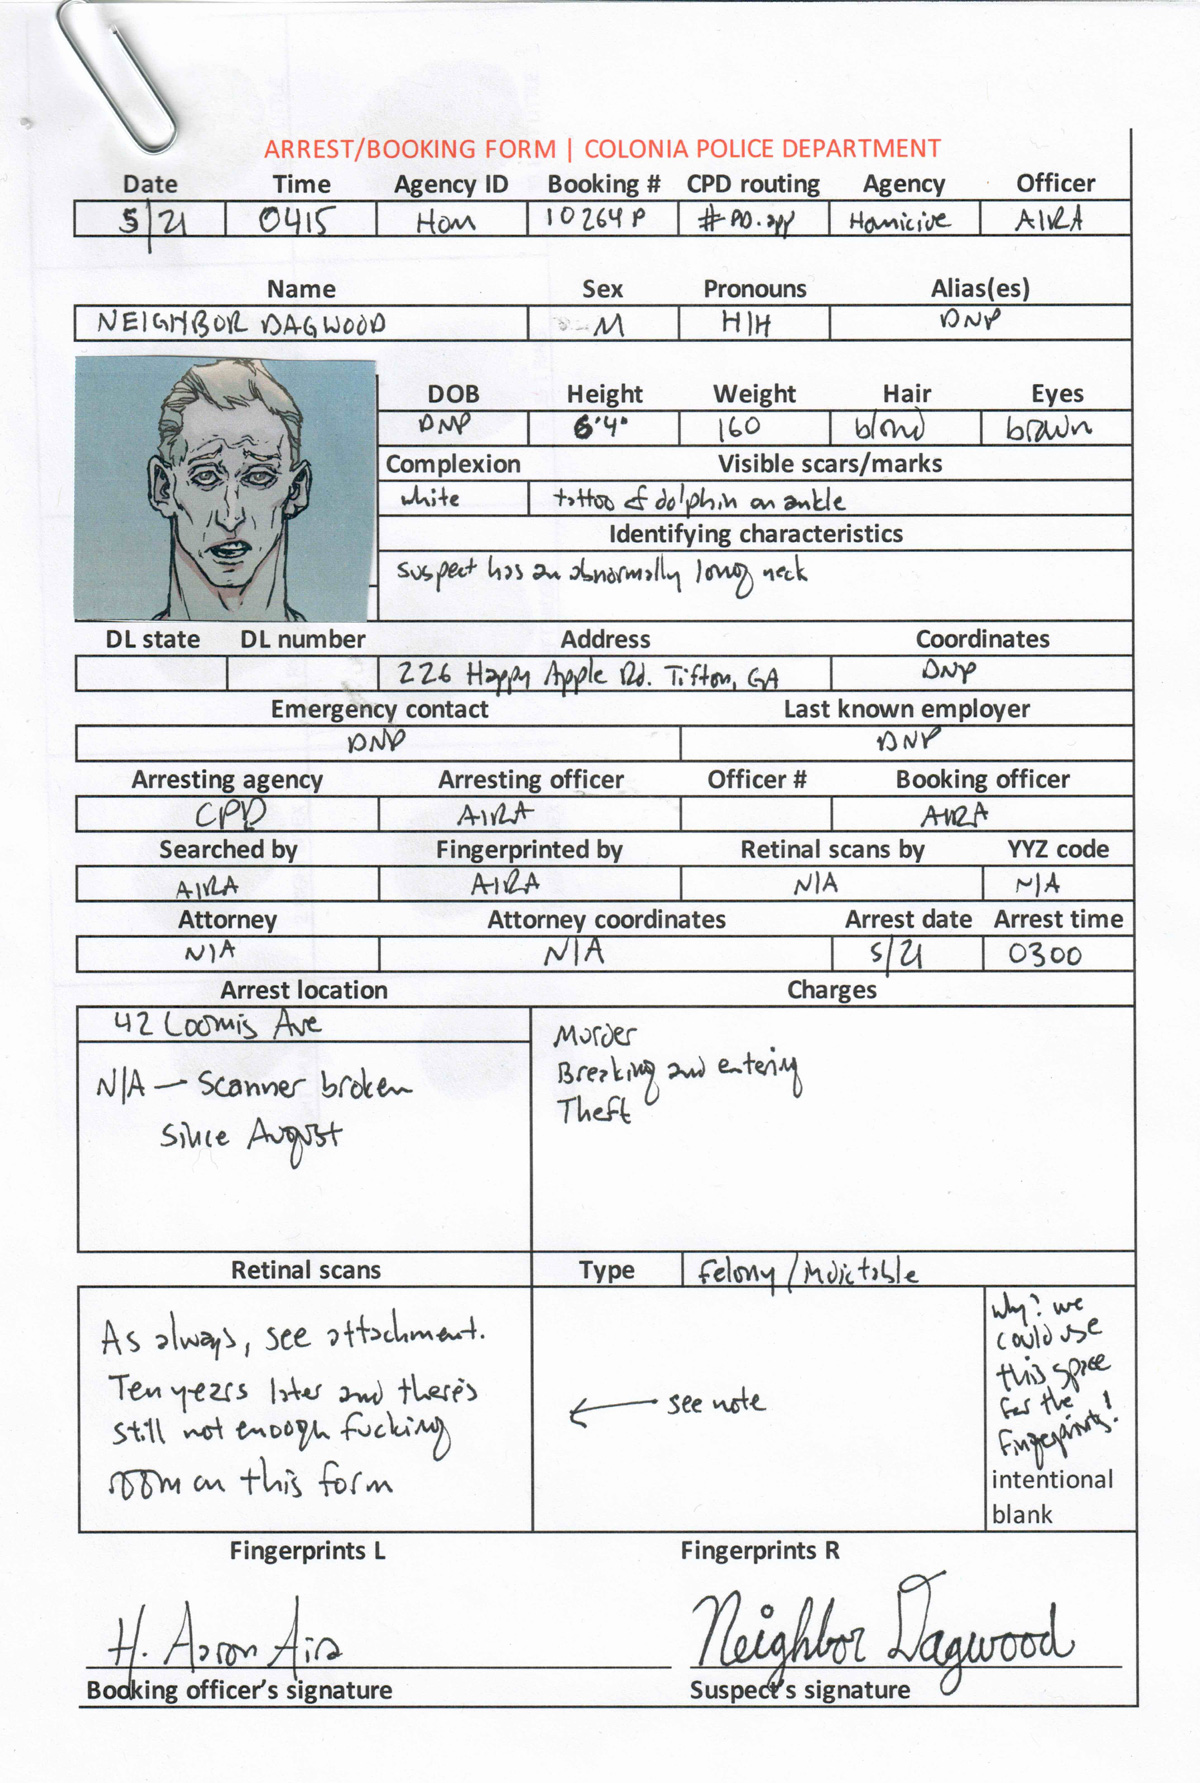 ARREST/BOOKING FORM | COLONIA POLICE DEPARTMENT
Date Time Agency ID Booking # CPD routing Agency Officer
5/21 0415 Hom 10264P #PD.app Homicive AIRA
Name Sex Pronouns Alias(es)
NEIGHBOR DAGWOOD M H/H DNP
DOB Height Weight Hair Eyes
DNP 6'4" 160 blond brown
Complexion Visible scars/marks
white tattoo of dolphin on ankle
Identifying characteristics
suspect has an abnormally long neck
DL state DL number Address Coordinates
226 Happy Apple Rd. Tifton, GA DNP
Emergency contact Last known employer
DNP DNP
Arresting agency Arresting officer Officer # Booking officer
CPD AIRA AIRA
Searched by Fingerprinted by Retinal scans by YYZ code
AIRA AIRA N/A N/A
Attorney Attorney coordinates Arrest date Arrest time
N/A N/A 5/21 0300
Arrest location Charges
42 Loomis Ave
N/A — Scanner broken
since August
Murder
Breaking and entering
Theft
Retinal scans Type Felony/Indictable
As always, see attachment.
Ten years later and there's
still not enough fucking
room on this form
← see note
Why? we
could use
this space
for the
fingerprints!
intentional
blank
Fingerprints L Fingerprints R
H. Aaron Aira Neighbor Dagwood
Booking officer's signature Suspect's signature